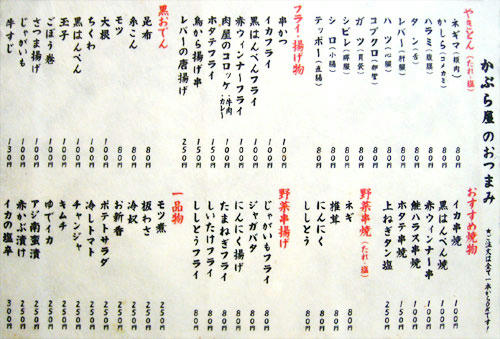 かぶら屋のおつまみ ★ご注文は全て一本からOKです!
やきとん(たれ・塩)
ネギマ(頬肉) 80円
かしら(コメカミ) 80円
ハラミ(腹膜) 80円
タン(舌) 80円
レバー(肝臓) 80円
ハツ(心臓) 80円
コブクロ(子宮) 80円
ガツ(胃袋) 80円
シビレ(膵臓) 80円
シロ(小腸) 80円
テッポー(直腸) 80円
フライ・揚げ物
串かつ 100円
イカフライ 100円
黒はんぺんフライ 100円
赤ウィンナーフライ 100円
肉屋のコロッケ・牛肉・カレー 100円
ホタテフライ 150円
鳥から揚げ串 150円
レバーの唐揚げ 250円
黒おでん
昆布 80円
糸こん 80円
モツ 80円
大根 100円
ちくわ 100円
黒はんぺん 100円
玉子 100円
ごぼう巻 100円
さつま揚げ 100円
じゃがいも 100円
牛すじ 130円
おすすめ焼物
イカ串焼 100円
黒はんぺん焼 100円
赤ウィンナー串 100円
鮭ハラス串焼 100円
ホタテ串焼 150円
上ねぎタン塩 250円
野菜串焼(たれ・塩)
ネギ 80円
椎茸 80円
にんにく 80円
ししとう 80円
野菜串揚げ
じゃがいもフライ 80円
ジャガバタ 80円
にんにく揚げ 80円
たまねぎフライ 80円
しいたけフライ 80円
ししとうフライ 80円
一品物
モツ煮 250円
板わさ 250円
冷奴 250円
お新香 250円
ポテトサラダ 250円
冷しトマト 250円
チャンジャ 250円
キムチ 250円
ゆでイカ 250円
アジ南蛮漬 250円
赤かぶ漬け 250円
イカの塩辛 300円